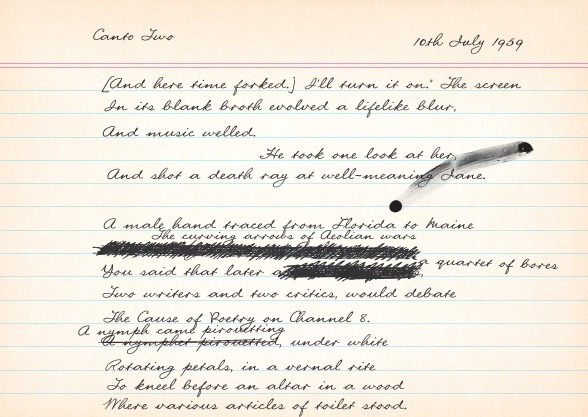 Canto Two
10th July 1959
[And here time forked.] I'll turn it on." The screen
In its blank broth evolved a lifelike blur,
And music welled.
He took one look at her,
And shot a death ray at well-meaning Jane.
A male hand traced from Florida to Maine
The curving arrows of Aeolian wars
You said that later a quartet of bores,
Two writers and two critics, would debate
The Cause of Poetry on Channel 8.
A nymph came pirouetting
A nymphet pirouetted, under white
Rotating petals, in a vernal rite
To kneel before an altar in a wood
Where various articles of toilet stood.